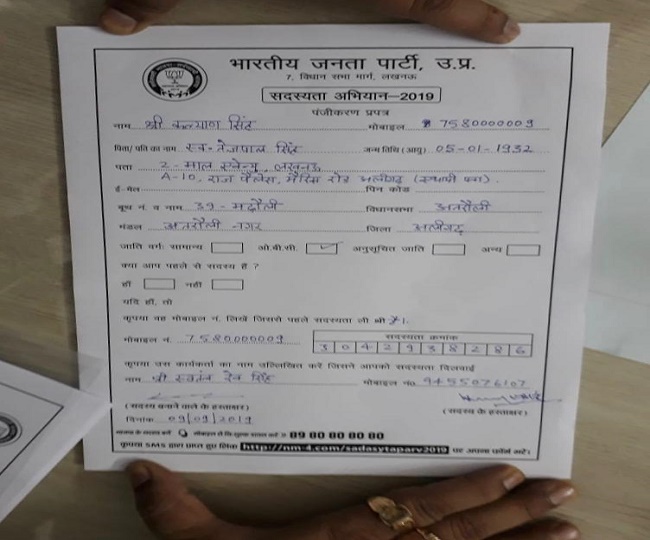 भारतीय जनता पार्टी, उ.प्र.
7, विधान सभा मार्ग, लखनऊ
सदस्यता अभियान–2019
पंजीकरण प्रपत्र
नाम श्री कल्याण सिंह मोबाइल 7580000009
पिता/पति का नाम स्व॰ तेजपाल सिंह जन्म तिथि (आयु) 05-01-1932
पता 2-माल एवेन्यू, लखनऊ
A-10, राज पैलेस, मैरिस रोड अलीगढ़ (स्थायी पता).
ई-मेल पिन कोड
बूथ नं. व नाम 39-मढ़ौली विधानसभा अतरौली
मंडल अतरौली नगर जिला अलीगढ़
जाति वर्ग: सामान्य ओ.बी.सी. ✓ अनुसूचित जाति अन्य
क्या आप पहले से सदस्य हैं ?
हाँ नहीं
यदि हाँ, तो
कृपया वह मोबाइल नं. लिखें जिससे पहले सदस्यता ली थी
मोबाइल नं. 7580000009 सदस्यता क्रमांक
3042938286
कृपया उस कार्यकर्ता का नाम उल्लिखित करें जिसने आपको सदस्यता दिलवाई
नाम श्री स्वतंत्र देव सिंह मोबाइल नं० 9455076107
(सदस्य बनाने वाले के हस्ताक्षर) (सदस्य के हस्ताक्षर)
दिनांक 09/09/2019
भाजपा के सदस्य बनें मोबाइल से नि:शुल्क डायल करें 89 80 80 80 80
कृपया SMS द्वारा प्राप्त हुए लिंक http://nm-4.com/sadasytaparv2019 पर अपना फॉर्म भरें।